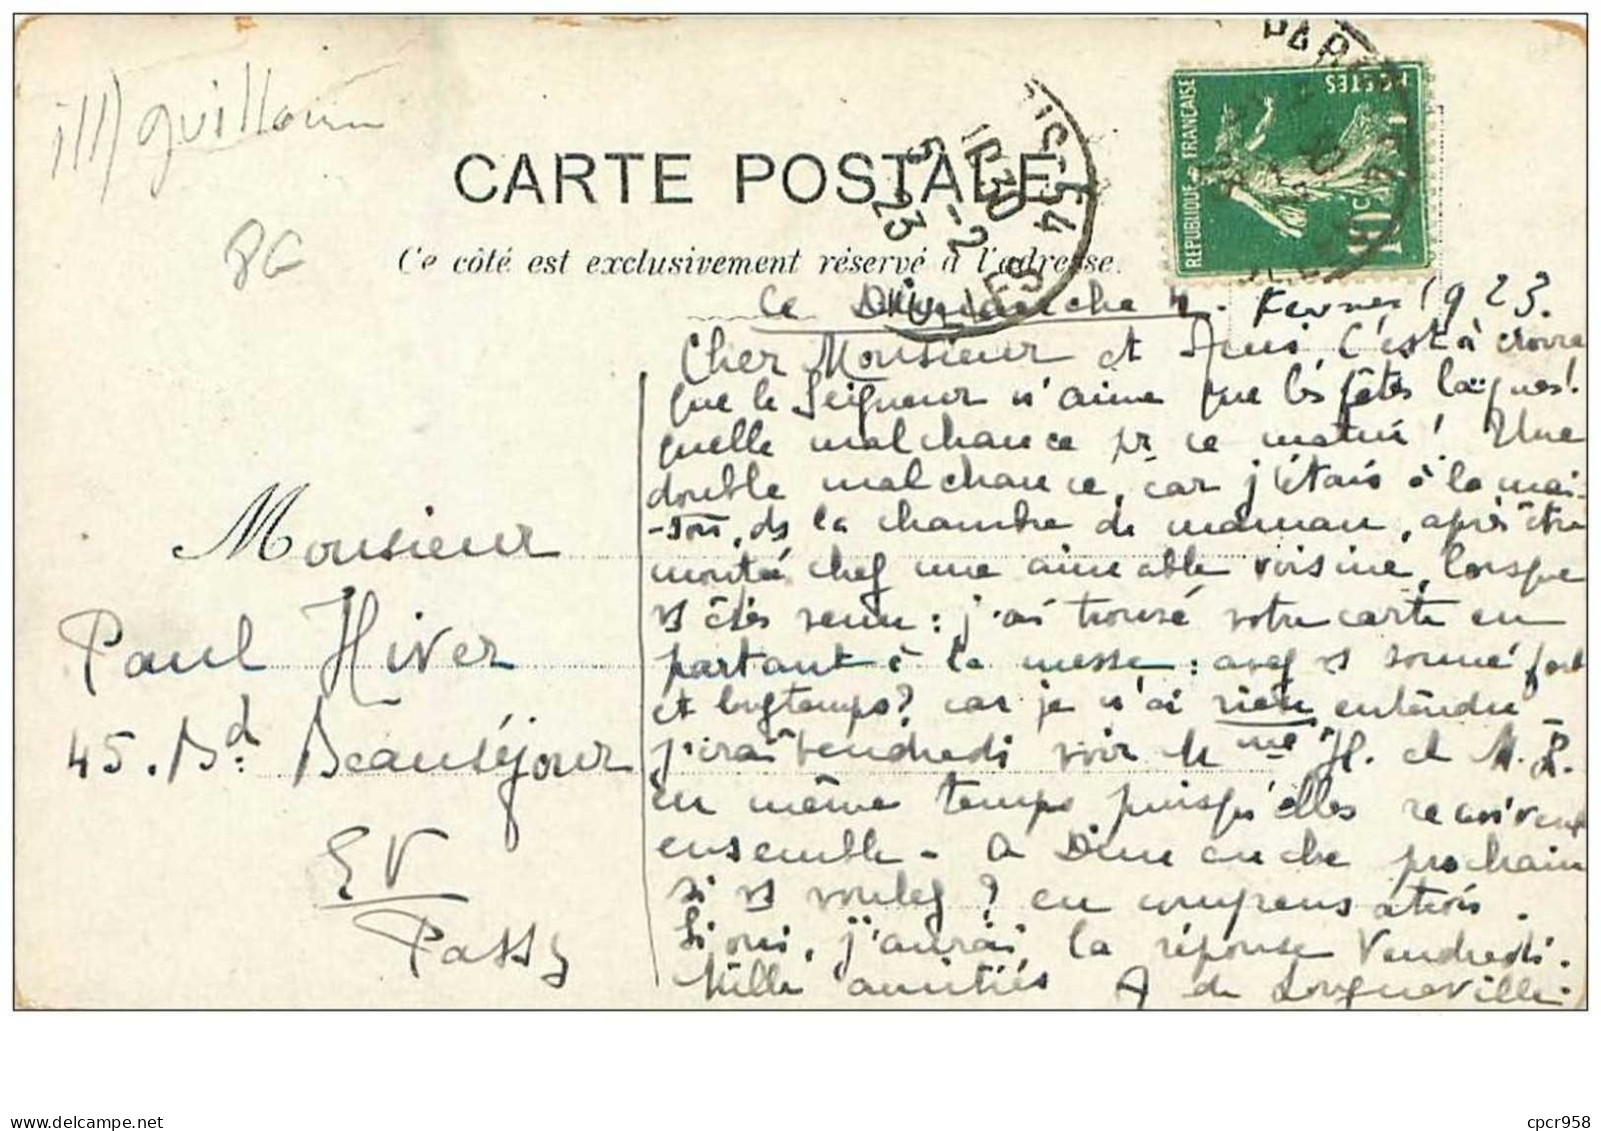 ill) guillaum
8G
CARTE POSTALE
Ce côté est exclusivement réservé à l'adresse.
PARIS-54
10 30
5 -2
23
REPUBLIQUE FRANÇAISE
POSTES
10 C
Ce Dimanche 4. Fevrier 1923.
Cher Monsieur et Ami, C'est à croire
que le Seigneur n'aime que les fêtes laïques!
quelle malchance pr ce matin! Une
double malchance, car j'étais à la mai-
-son, ds la chambre de maman, après être
monté chez une aimable voisine, lorsque
vs êtes venu : j'ai trouvé votre carte en
partant à la messe : avez vs sonné fort
et longtemps? car je n'ai rien entendu
j'irai vendredi voir Mme H. et M. L.
en même temps puisqu'elles reçoivent
ensemble - A Dimanche prochain
si vs voulez? en compensation.
Si oui, j'aurai la réponse Vendredi.
Mille amitiés A de Longueville.
Monsieur
Paul Hiver
45. Bd. Beauséjour
EV
Passy
delcampe.net
cpcr958